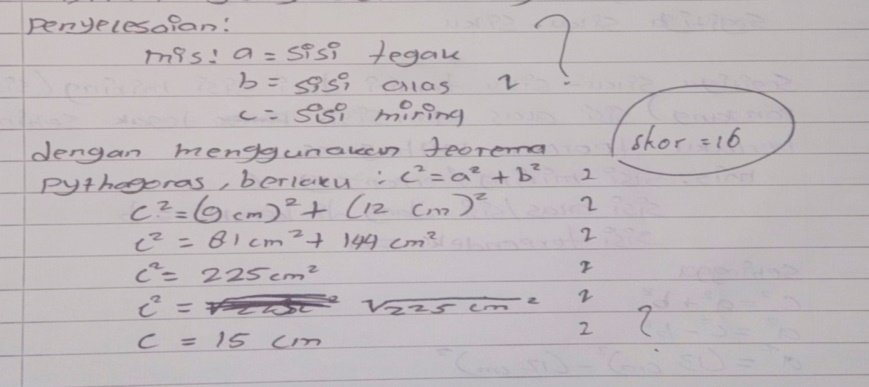 Penyelesaian:
mis: a = sisi tegak ?
b = sisi alas 2
c = sisi miring
dengan menggunakan teorema skor = 16
Pythagoras, berlaku : c² = a² + b² 2
c² = (9 cm)² + (12 cm)² 2
c² = 81 cm² + 144 cm² 2
c² = 225 cm² 2
c² = √225 cm² 2
c = 15 cm 2 ?